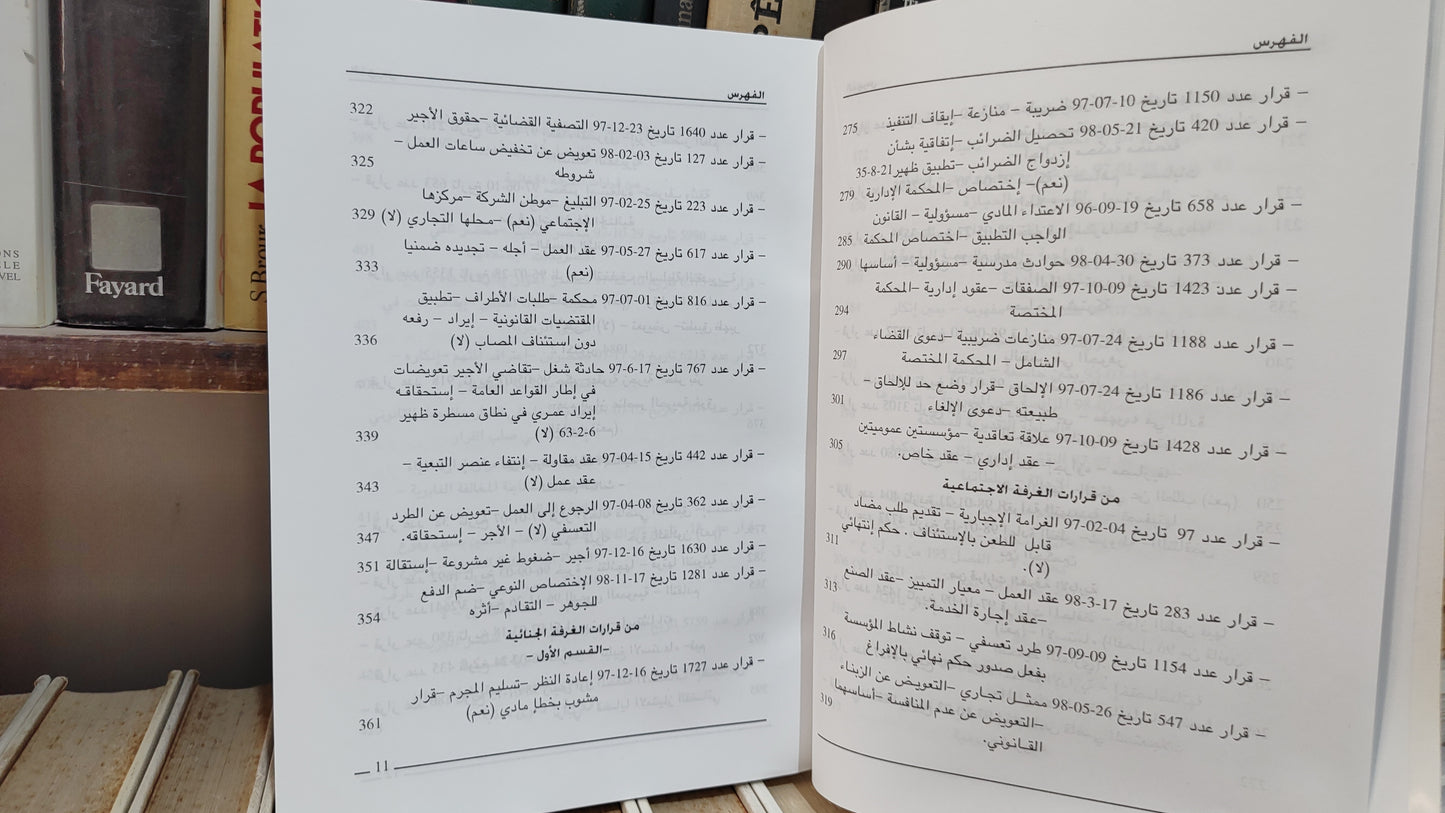 الفهرس
– قرار عدد 1150 تاريخ 10-07-97 ضريبة – منازعة –إيقاف التنفيذ 275
– قرار عدد 420 تاريخ 21-05-98 تحصيل الضرائب –إتفاقية بشأن
إزدواج الضرائب –تطبيق ظهير21-8-35
(نعم)– إختصاص –المحكمة الإدارية 279
– قرار عدد 658 تاريخ 19-09-96 الاعتداء المادي –مسؤولية – القانون
الواجب التطبيق –اختصاص المحكمة 285
– قرار عدد 373 تاريخ 30-04-98 حوادث مدرسية –مسؤولية – أساسها 290
– قرار عدد 1423 تاريخ 09-10-97 الصفقات –عقود إدارية –المحكمة
المختصة 294
– قرار عدد 1188 تاريخ 24-07-97 منازعات ضريبية –دعوى القضاء
الشامل – المحكمة المختصة 297
– قرار عدد 1186 تاريخ 24-07-97 الإلحاق –قرار وضع حد للإلحاق –
طبيعته –دعوى الإلغاء 301
– قرار عدد 1428 تاريخ 09-10-97 علاقة تعاقدية –مؤسستين عموميتين
– عقد إداري – عقد خاص. 305
من قرارات الغرفة الاجتماعية
– قرار عدد 97 تاريخ 04-02-97 الغرامة الإجبارية – تقديم طلب مضاد
قابل للطعن بالإستئناف . حكم إنتهائي
(لا). 311
– قرار عدد 283 تاريخ 17-3-98 عقد العمل – معيار التمييز –عقد الصنع
–عقد إجارة الخدمة. 313
– قرار عدد 1154 تاريخ 09-09-97 طرد تعسفي – توقف نشاط المؤسسة
بفعل صدور حكم نهائي بالإفراغ 316
– قرار عدد 547 تاريخ 26-05-98 ممثل تجاري –التعويض عن الزبناء
–التعويض عن عدم المنافسة –أساسهما
القانوني. 319
الفهرس
– قرار عدد 1640 تاريخ 23-12-97 التصفية القضائية –حقوق الأجير 322
– قرار عدد 127 تاريخ 03-02-98 تعويض عن تخفيض ساعات العمل –
شروطه 325
– قرار عدد 223 تاريخ 25-02-97 التبليغ – موطن الشركة –مركزها
الإجتماعي (نعم) –محلها التجاري (لا) 329
– قرار عدد 617 تاريخ 27-05-97 عقد العمل – أجله – تجديده ضمنيا
(نعم) 333
– قرار عدد 816 تاريخ 01-07-97 محكمة –طلبات الأطراف –تطبيق
المقتضيات القانونية – إيراد – رفعه
دون استئناف المصاب (لا) 336
– قرار عدد 767 تاريخ 17-6-97 حادثة شغل –تقاضي الأجير تعويضات
في إطار القواعد العامة – إستحقاقه
إيراد عمري في نطاق مسطرة ظهير
6-2-63 (لا) 339
– قرار عدد 442 تاريخ 15-04-97 عقد مقاولة – إنتفاء عنصر التبعية –
عقد عمل (لا) 343
– قرار عدد 362 تاريخ 08-04-97 الرجوع إلى العمل –تعويض عن الطرد
التعسفي (لا) – الأجر – إستحقاقه. 347
– قرار عدد 1630 تاريخ 16-12-97 أجير –ضغوط غير مشروعة –إستقالة 351
– قرار عدد 1281 تاريخ 17-11-98 الإختصاص النوعي –ضم الدفع
للجوهر – التقادم –أثره 354
من قرارات الغرفة الجنائية
–القسم الأول –
– قرار عدد 1727 تاريخ 16-12-97 إعادة النظر –تسليم المجرم –قرار
مشوب بخطإ مادي (نعم) 361
11
Fayard
LA POPULATI
S Brour
ONS
ELE
VEL